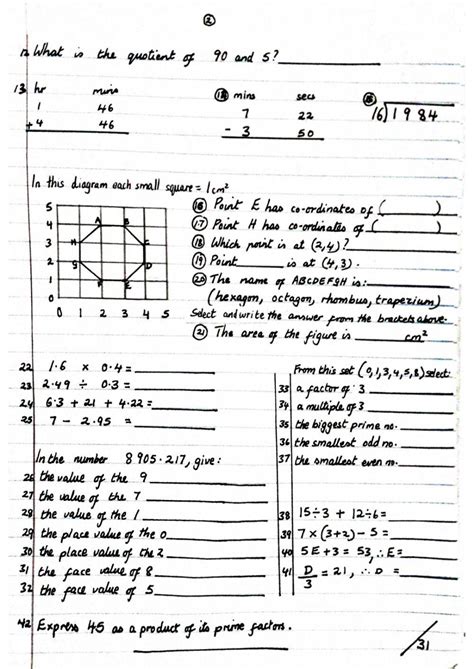 ②
12 What is the quotient of 90 and 5?
13 hr mins
1 46
+ 4 46
⑭ mins secs
7 22
- 3 50
⑮ 16)1984
In this diagram each small square = 1cm²
5
4
3
2
1
0 1 2 3 4 5
A B
H C
G D
F E
⑯ Point E has co-ordinates of ( )
⑰ Point H has co-ordinates of ( )
⑱ Which point is at (2,4)?
⑲ Point is at (4,3).
⑳ The name of ABCDEFGH is:
(hexagon, octagon, rhombus, trapezium)
Select and write the answer from the brackets above.
㉑ The area of the figure is cm²
22 1.6 x 0.4 =
23 2.49 ÷ 0.3 =
24 6.3 + 21 + 4.22 =
25 7 - 2.95 =
From this set (0,1,3,4,5,8) select:
33 a factor of 3
34 a multiple of 3
35 the biggest prime no.
36 the smallest odd no.
37 the smallest even no.
In the number 8905.217, give:
26 the value of the 9
27 the value of the 7
28 the value of the 1
29 the place value of the 0
30 the place value of the 2
31 the face value of 8
32 the face value of 5
38 15÷3 + 12÷6 =
39 7x(3+2) - 5 =
40 5E+3 = 53, ∴ E=
41 D/3 = 21, ∴ D =
42 Express 45 as a product of its prime factors.
/31